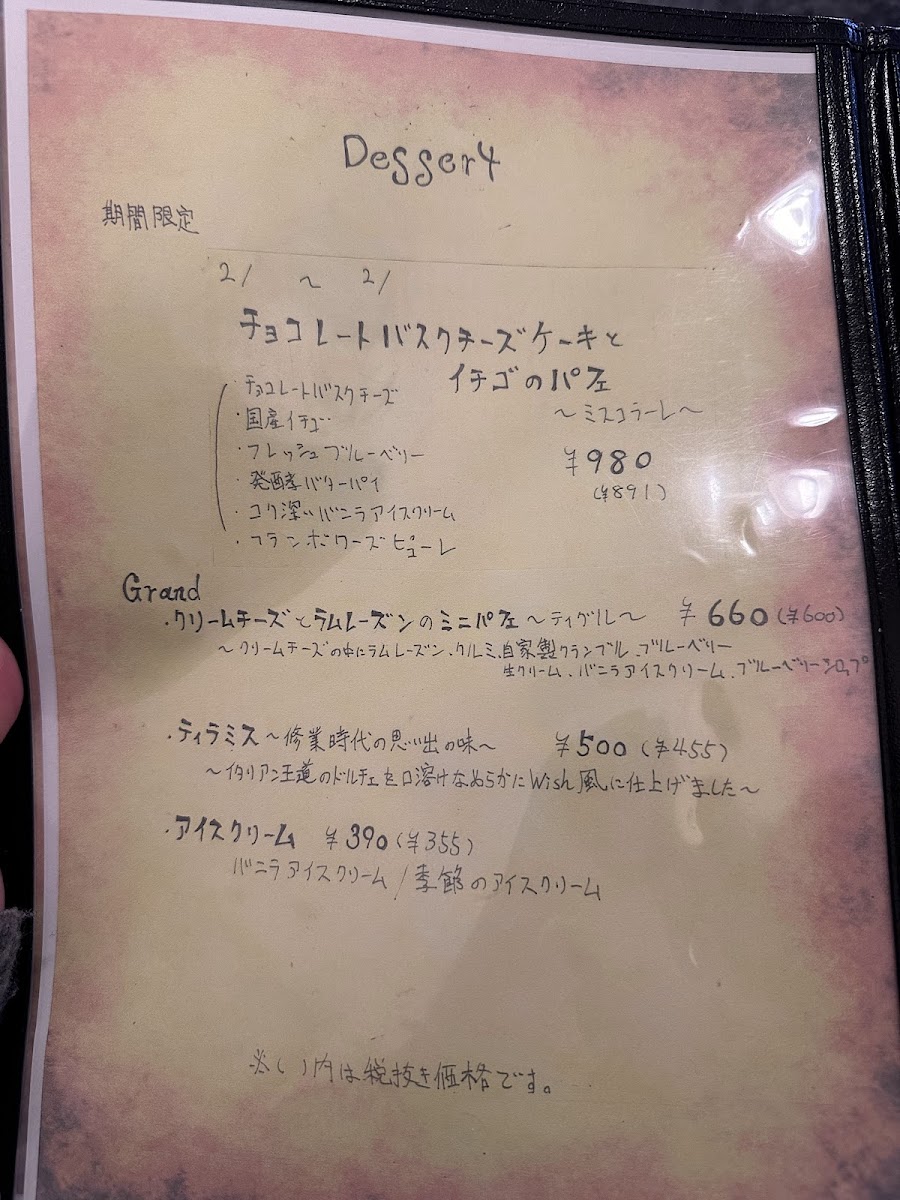 Dessert
期間限定
2/ ～ 2/
チョコレートバスクチーズケーキと
イチゴのパフェ
～ミスコラーレ～
・チョコレートバスクチーズ
・国産イチゴ
・フレッシュブルーベリー
・発酵バターパイ
・コク深いバニラアイスクリーム
・フランボワーズピューレ
¥980
(¥891)
Grand
・クリームチーズとラムレーズンのミニパフェ～ティグル～ ¥660(¥600)
～クリームチーズの中にラムレーズン、クルミ、自家製クランブル、ブルーベリー
生クリーム、バニラアイスクリーム、ブルーベリーシロップ
・ティラミス～修業時代の思い出の味～ ¥500(¥455)
～イタリアン王道のドルチェを口溶けなめらかにWish風に仕上げました～
・アイスクリーム ¥390(¥355)
バニラアイスクリーム/季節のアイスクリーム
※( )内は税抜き価格です。